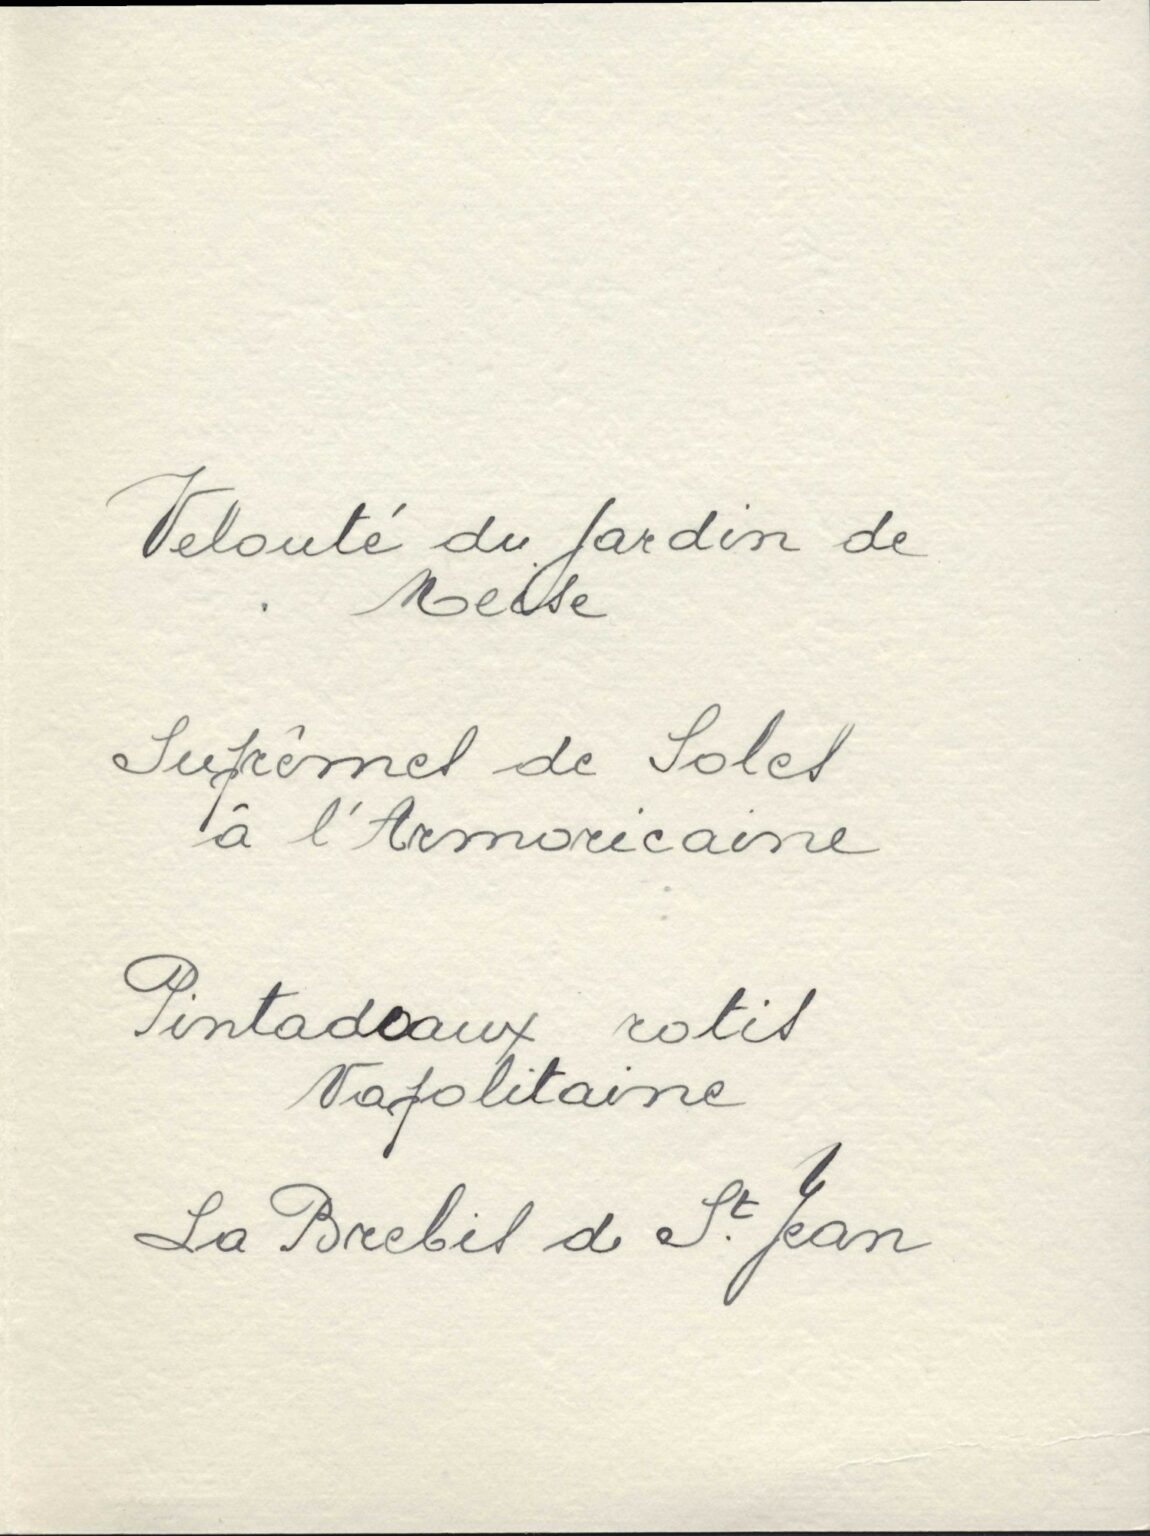 Velouté du Jardin de
Meise
Suprêmes de Soles
à l'Armoricaine
Pintadeaux rotis
Napolitaine
La Brebis d St. Jean